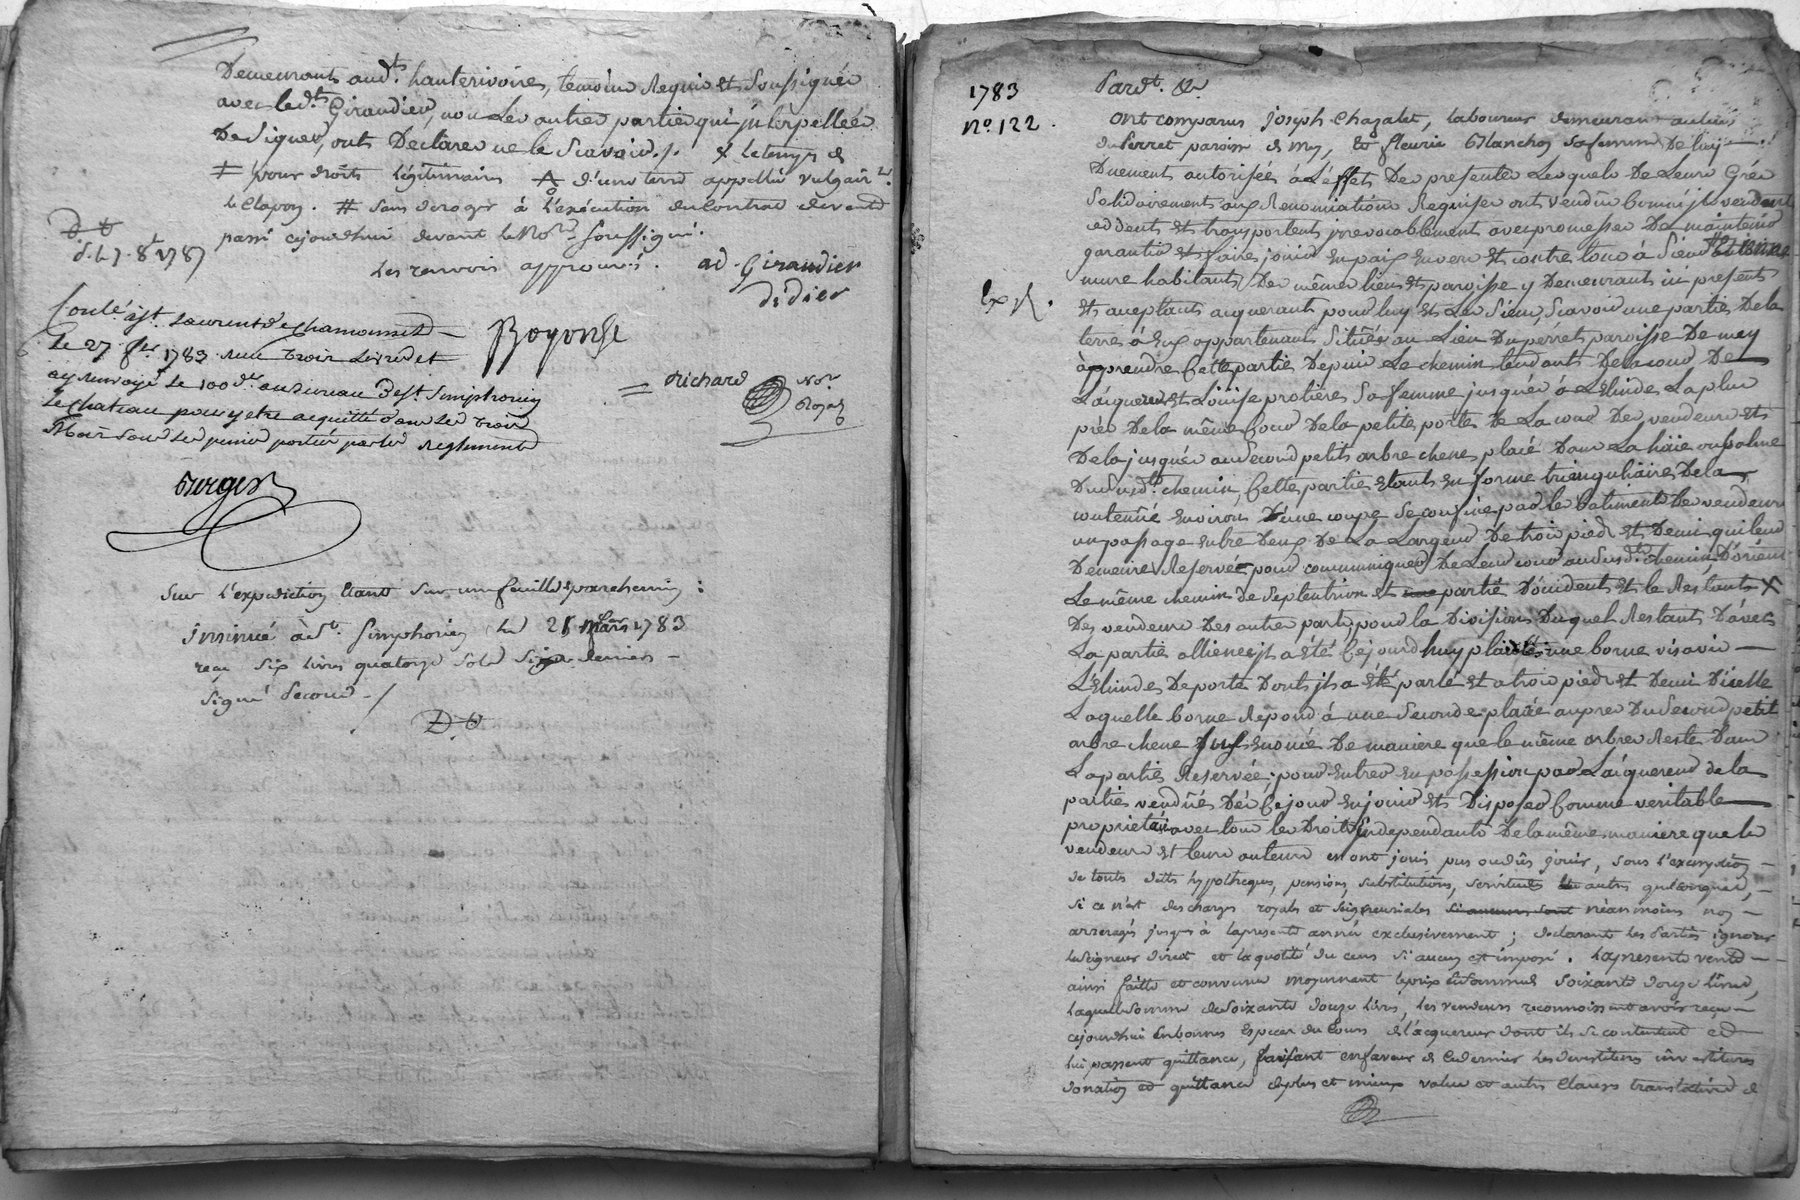 Demeurants aud.t hauterivoire, temoins Requis et Soussignés
avec led.t Girandier, non Les autres parties qui jnterpellées
De Signer, onts Declarer ne le Scavoir ./. & letemps de
# pour droits légitimaires A d'une terre appellée vulgair.t
le Clapon. # Sans deroger à l'exécution du Contrat de vente
passé cejourdhui devant le No.re Soussigné.
D D
d. L 7. 8t 1787
Les renvois approuvés. ad. Girandier
didier
Conlé à St. Laurent de Chamousset
Le 27 1783 Reçu trois Livres et
ay renvoyé le 100.e au bureau de St. Simphorien
le chateau pour y etre acquitté dans les trois
Mois sous les peines portées par les Reglements
Bogonse
Richard No.re
Royal
Berger
Sur l'expedition Etant Sur une feuille parchemin :
Insinué à St. Simphorien Le 21 Mars 1783
reçu Six livres quatorze Sols Six deniers
Signé Second ./
D. D
1783
No. 122.
Pardt. &c.
Ont comparus joseph Chazalet, laboureur demeurant au lieu
du Perret paroisse de mey, Et fleurie Blanchon sa femme De luy
Duement autorisée à L'éffets Des presentes Lesquels De Leurs Grés
Solidairement aux Renonciations Requises onts vendus comme jls vendent
cedents et transportent jrrevocablement avec promesse De maintenir
garantir et faire jouir en paix envers et contre tous à Sieur Etienne
mure habitants Des mêmes lieu et paroisse y Demeurant ici presents
Ex R.
Et aceptants aiquerants pour luy et Les Siens, Scavoir une partie De la
terre à Eux appartenant Située au Lieu Du perret paroisse De mey
à prendre Cette partie Depuis Le chemin tendants De la cour De
L'aiquereur et Louise protières Sa femme jusques à L'Elinde La plus
près De la même Cour De la petite porte De La cour Des vendeurs et
De la jusques au Second petit arbre chene placé Dans La haie ou palme
Dususd.t chemin, Cette partie etants en forme trianguliaire De la
contenue environ D'une coupe Se confine par les batiments Des vendeurs
un passage entre Deux De La Largeur De trois pieds et Demi qui leur
Demeure Reservée pour communiquer De Leur cour au susd.t chemin, D'orient
Le même chemin de Septentrion et partie D'occident et le Restants X
Des vendeurs Des autres parts, pour la Division Duquel Restant D'avec
La partie allienée jl a été Cejourd'huy plaidté une borne visavis
L'Elinde De porte Dont jl a été parlé et a trois pieds et Demi D'icelle
Laquelle borne Repond à une Seconde plaitée auprès Du Second petit
arbre chene Sus Enoncé De maniere que le même arbre Reste Dans
La partie Reservée; pour Entrer en possession par L'aiquereur de la
partie vendue Dés Ce jour en jouir et Disposer Comme veritable
proprietaire avec tous les Droits jndependants De la même maniere que les
vendeurs et leurs auteurs en ont joui, pus ou dûs jouir, sous l'exemption
de touts dettes hypotheques, pensions, substitutions, servitudes autres quelconques,
si ce n'est des charges royales et Seigneuriales néanmoins nos
arrerages jusques à la presente année exclusivement; declarant les Parties ignorer
le seigneur direct et la quotité du cens si aucun est imposé. La presente vente
ainsi faitte et convenue moyennant le prix et somme de Soixante douze Livres,
laquelle somme de Soixante douze livres, les vendeurs reconnoissent avoir reçu
cejourdhui en bonnes Especes du Cours de l'acquereur dont ils se contentent et
lui passent quittance, faisant en faveur de Ce dernier les devestitures investitures
donation et quittance de plus et mieux value et autres Clauses translatives de